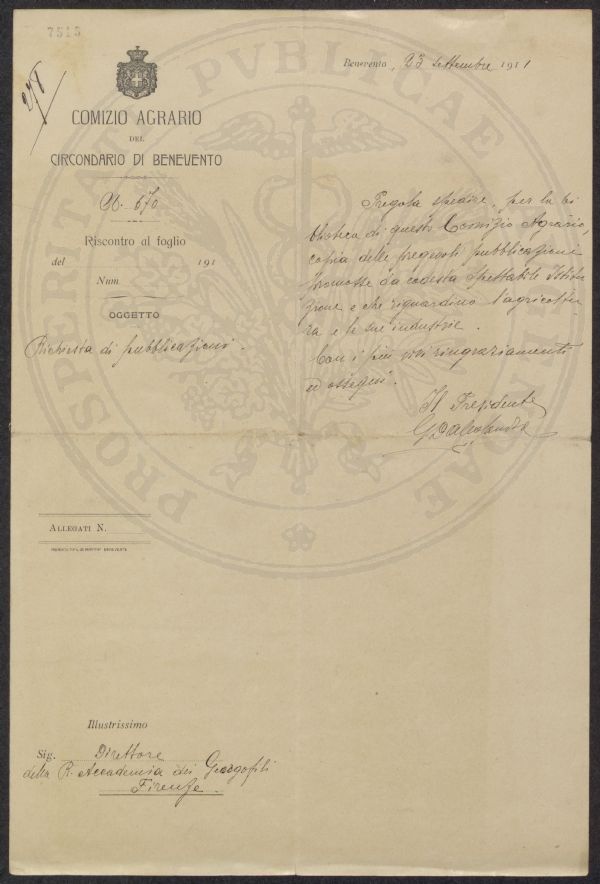 7515
278
COMIZIO AGRARIO
DEL
CIRCONDARIO DI BENEVENTO
N. 670
Riscontro al foglio
del 191
Num
OGGETTO
Richiesta di pubblicazioni.
Benevento, 23 Settembre 1911
Pregola spedire, per la bi
blioteca di questo Comizio Agrario,
copia delle pregevoli pubblicazioni
promosse da codesta spettabile Istitu
zione e che riguardino l'agricoltu
ra e le sue industrie.
Con i più vivi ringraziamenti
ed ossequi.
Il Presidente
ALLEGATI N.
BENEVENTO
Illustrissimo
Sig. Direttore
della R. Accademia dei Georgofili
Firenze.
PROSPERITATI PVBLICAE